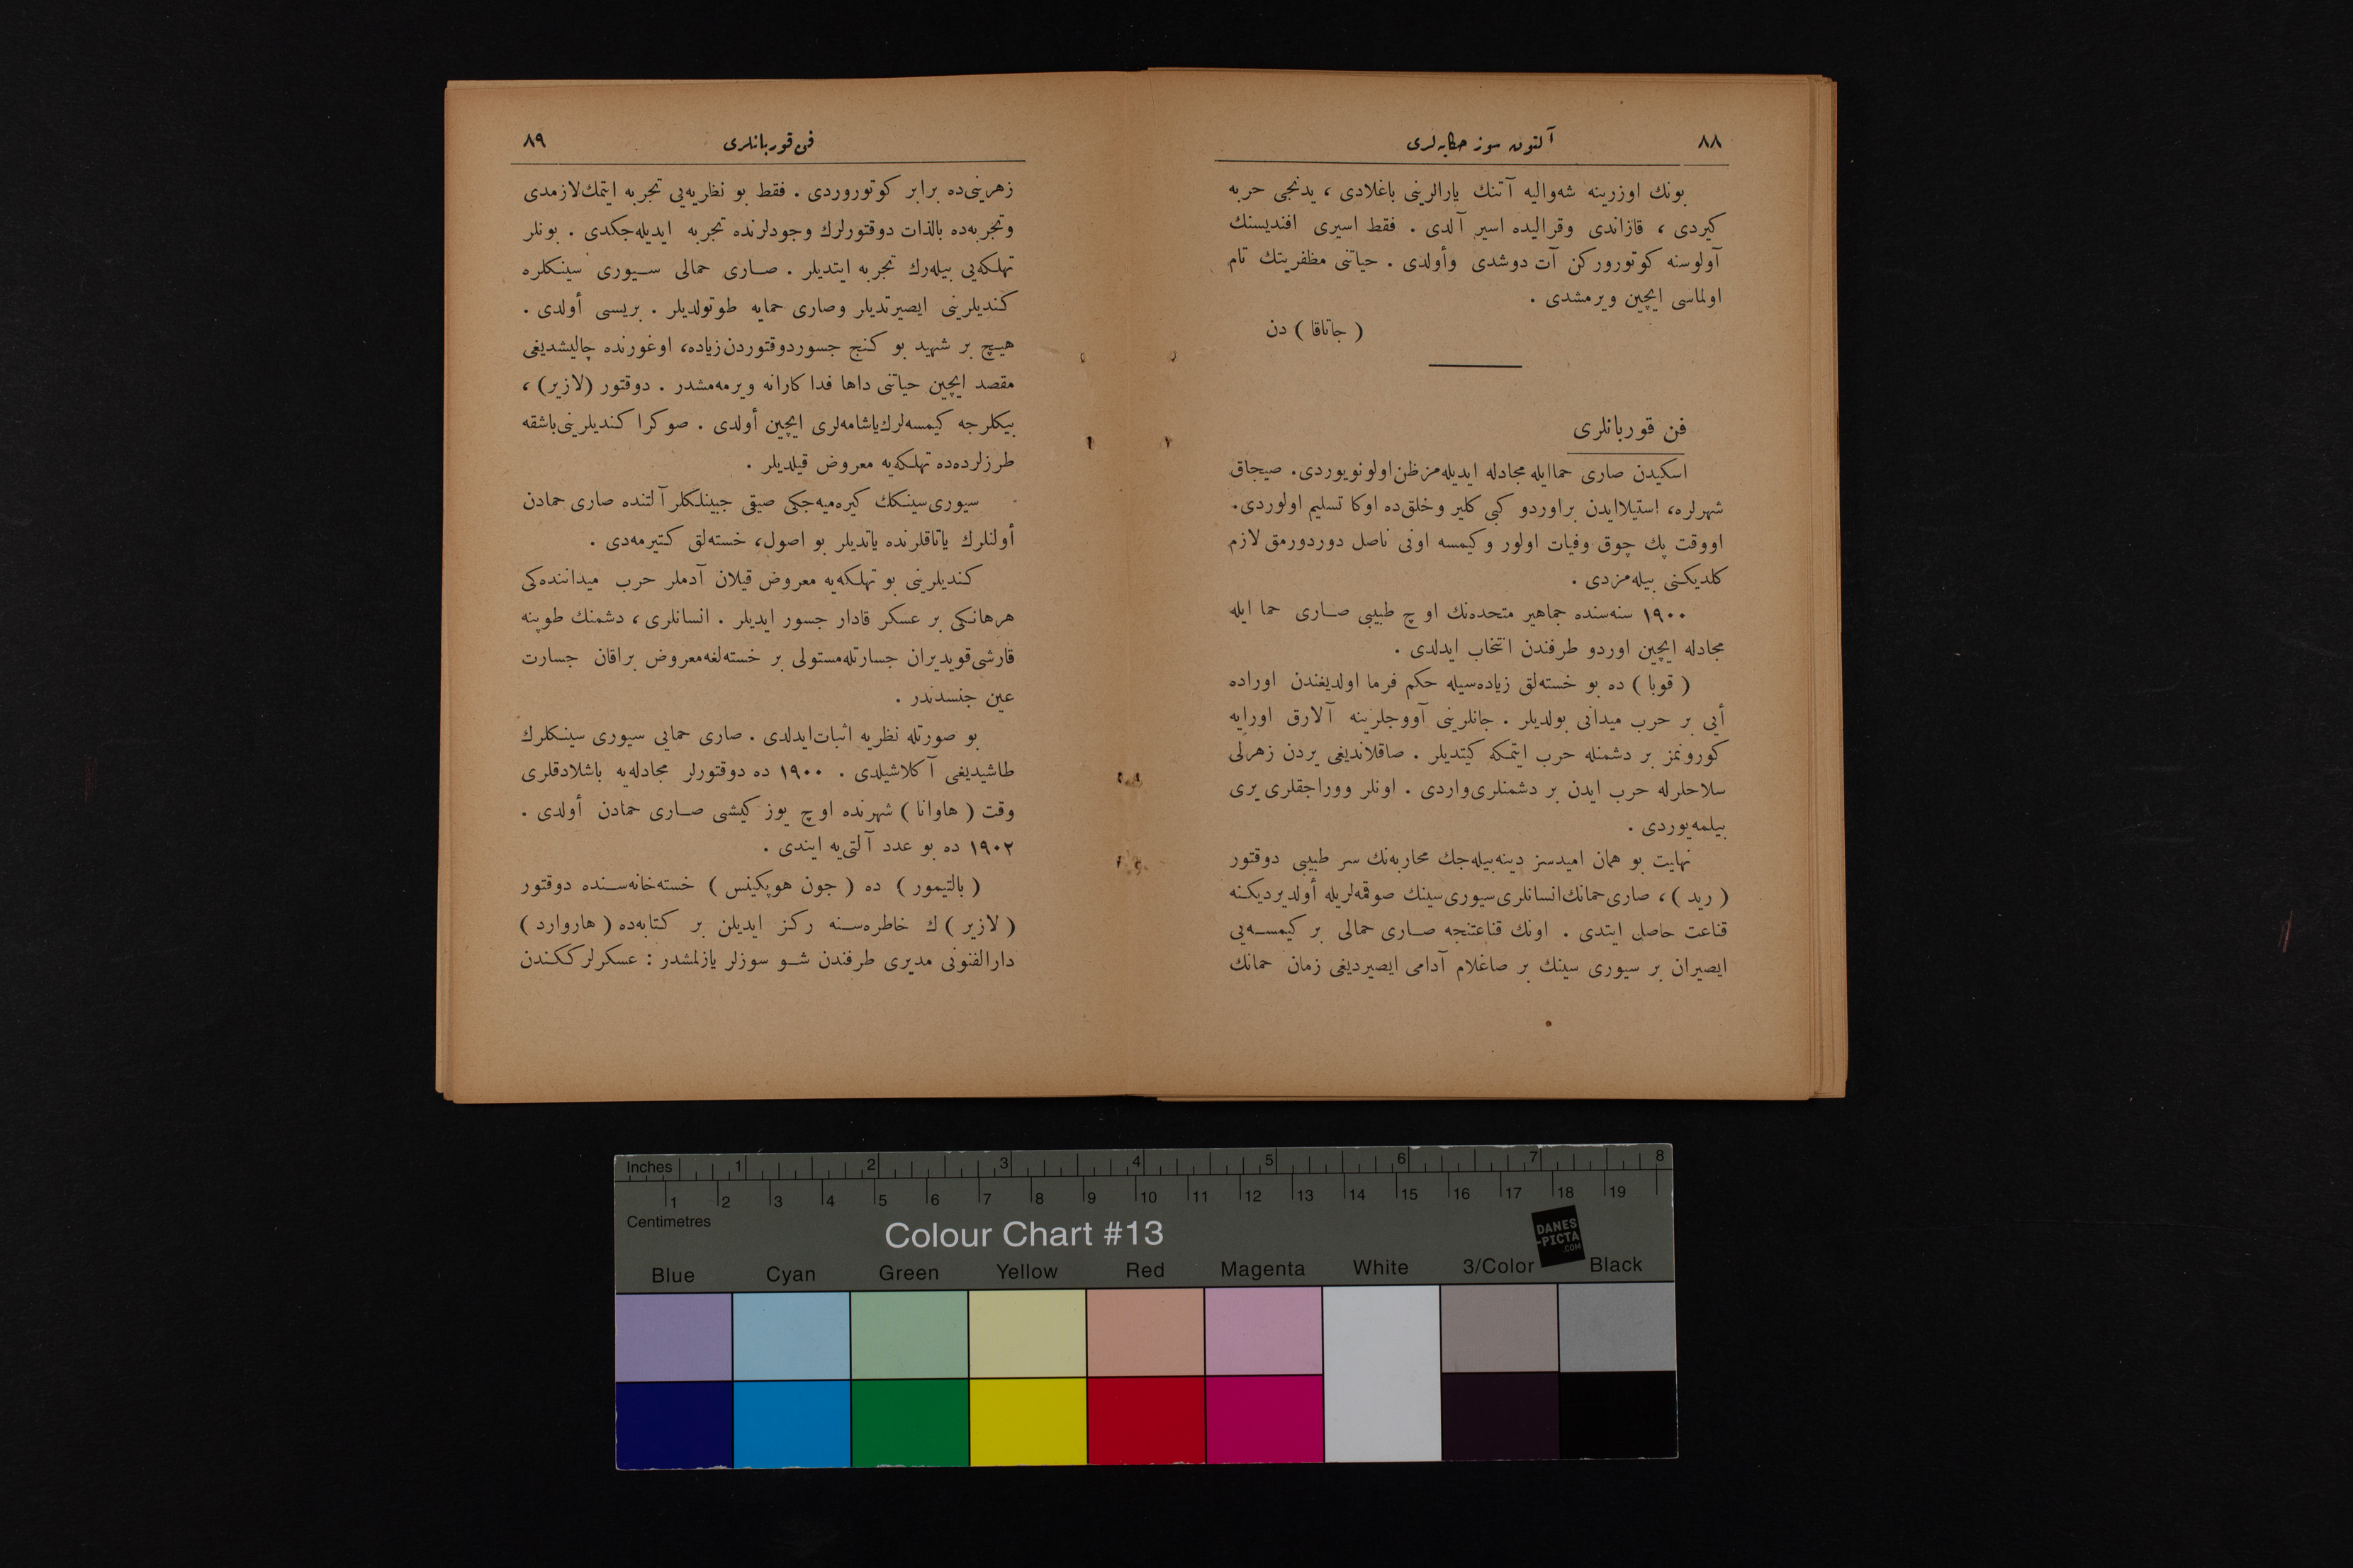 ٨٨
آلتون سوز حكایه‌لری
بونك اوزرینه شه‌والیه آتنك یارالرینی باغلادی ، یدنجی حربه
كیردی ، قازاندی وقرالیده اسیر آلدی . فقط اسیری افندیسنك
آولوسنه كوتورركن آت دوشدی وأولدی . حیاتنی مظفریتك تام
اولماسی ایچین ویرمشدی .
( جاتاقا ) دن
فن قوربانلری
اسكیدن صاری حماایله مجادله ایدیله‌مز ظن‌اولونویوردی. صیجاق
شهرلره، استیلاایدن براوردو كبی كلیر وخلق‌ده اوكا تسلیم اولوردی.
اووقت پك چوق وفیات اولور وكیمسه اونی ناصل دوردورمق لازم
كلدیكنی بیله‌مزدی .
١٩٠٠ سنه‌سنده جماهیر متحده‌نك اوچ طبیبی صاری حما ایله
مجادله ایچین اوردو طرفندن انتخاب ایدلدی .
( قوبا ) ده بو خسته‌لق زیاده‌سیله حكم فرما اولدیغندن اوراده
أیی بر حرب میدانی بولدیلر . جانلرینی آووجلرینه آلارق اورایه
كورونمز بر دشمنله حرب ایتمكه كیتدیلر . صاقلاندیغی یردن زهرلی
سلاحلرله حرب ایدن بر دشمنلری‌واردی . اونلر ووراجقلری یری
بیلمه‌یوردی .
نهایت بو همان امیدسز دینه‌بیله‌جك محاربه‌نك سر طبیبی دوقتور
( رید ) ، صاری‌حمانك‌انسانلری‌سیوری‌سینك صوقمه‌لریله أولدیردیكنه
قناعت حاصل ایتدی . اونك قناعتنجه صاری حمالی بر كیمسه‌یی
ایصیران بر سیوری سینك بر صاغلام آدامی ایصیردیغی زمان حمانك
فن قوربانلری
٨٩
زهرینی‌ده برابر كوتوروردی . فقط بو نظریه‌یی تجربه ایتمك‌لازمدی
وتجربه‌ده بالذات دوقتورلرك وجودلرنده تجربه ایدیله‌جكدی . بونلر
تهلكه‌یی بیله‌رك تجربه ایتدیلر . صاری حمالی سیوری سینكلره
كندیلرینی ایصیرتدیلر وصاری حمایه طوتولدیلر . بریسی أولدی .
هیچ بر شهید بو كنج جسوردوقتوردن‌زیاده، اوغورنده چالیشدیغی
مقصد ایچین حیاتنی داها فداكارانه ویرمه‌مشدر . دوقتور (لازیر) ،
بیكلرجه كیمسه‌لرك‌یاشامه‌لری ایچین أولدی . صوكرا كندیلرینی‌باشقه
طرزلرده‌ده تهلكه‌یه معروض قیلدیلر .
سیوری‌سینكك كیره‌میه‌جكی صیقی جبینلكلر آلتنده صاری حمادن
أولنلرك یاتاقلرنده یاتدیلر بو اصول، خسته‌لق كتیرمه‌دی .
كندیلرینی بو تهلكه‌یه معروض قیلان آدملر حرب میداننده‌كی
هرهانكی بر عسكر قادار جسور ایدیلر . انسانلری ، دشمنك طوپنه
قارشی‌قویدیران جسارتله‌مستولی بر خسته‌لغه‌معروض براقان جسارت
عین جنسدندر .
بو صورتله نظریه اثبات‌ایدلدی . صاری حمایی سیوری سینكلرك
طاشیدیغی آكلاشیلدی . ١٩٠٠ ده دوقتورلر مجادله‌یه باشلادقلری
وقت ( هاوانا ) شهرنده اوچ یوز كیشی صاری حمادن أولدی .
١٩٠٢ ده بو عدد آلتی‌یه ایندی .
( بالتیمور ) ده ( جون هوپكینس ) خسته‌خانه‌سنده دوقتور
( لازیر ) ك خاطره‌سنه ركز ایدیلن بر كتابه‌ده ( هاروارد )
دارالفنونی مدیری طرفندن شو سوزلر یازلمشدر : عسكرلرككندن
Inches 1 2 3 4 5 6 7 8
1 2 3 4 5 6 7 8 9 10 11 12 13 14 15 16 17 18 19
Centimetres
Colour Chart #13
DANES
-PICTA
.COM
Blue Cyan Green Yellow Red Magenta White 3/Color Black